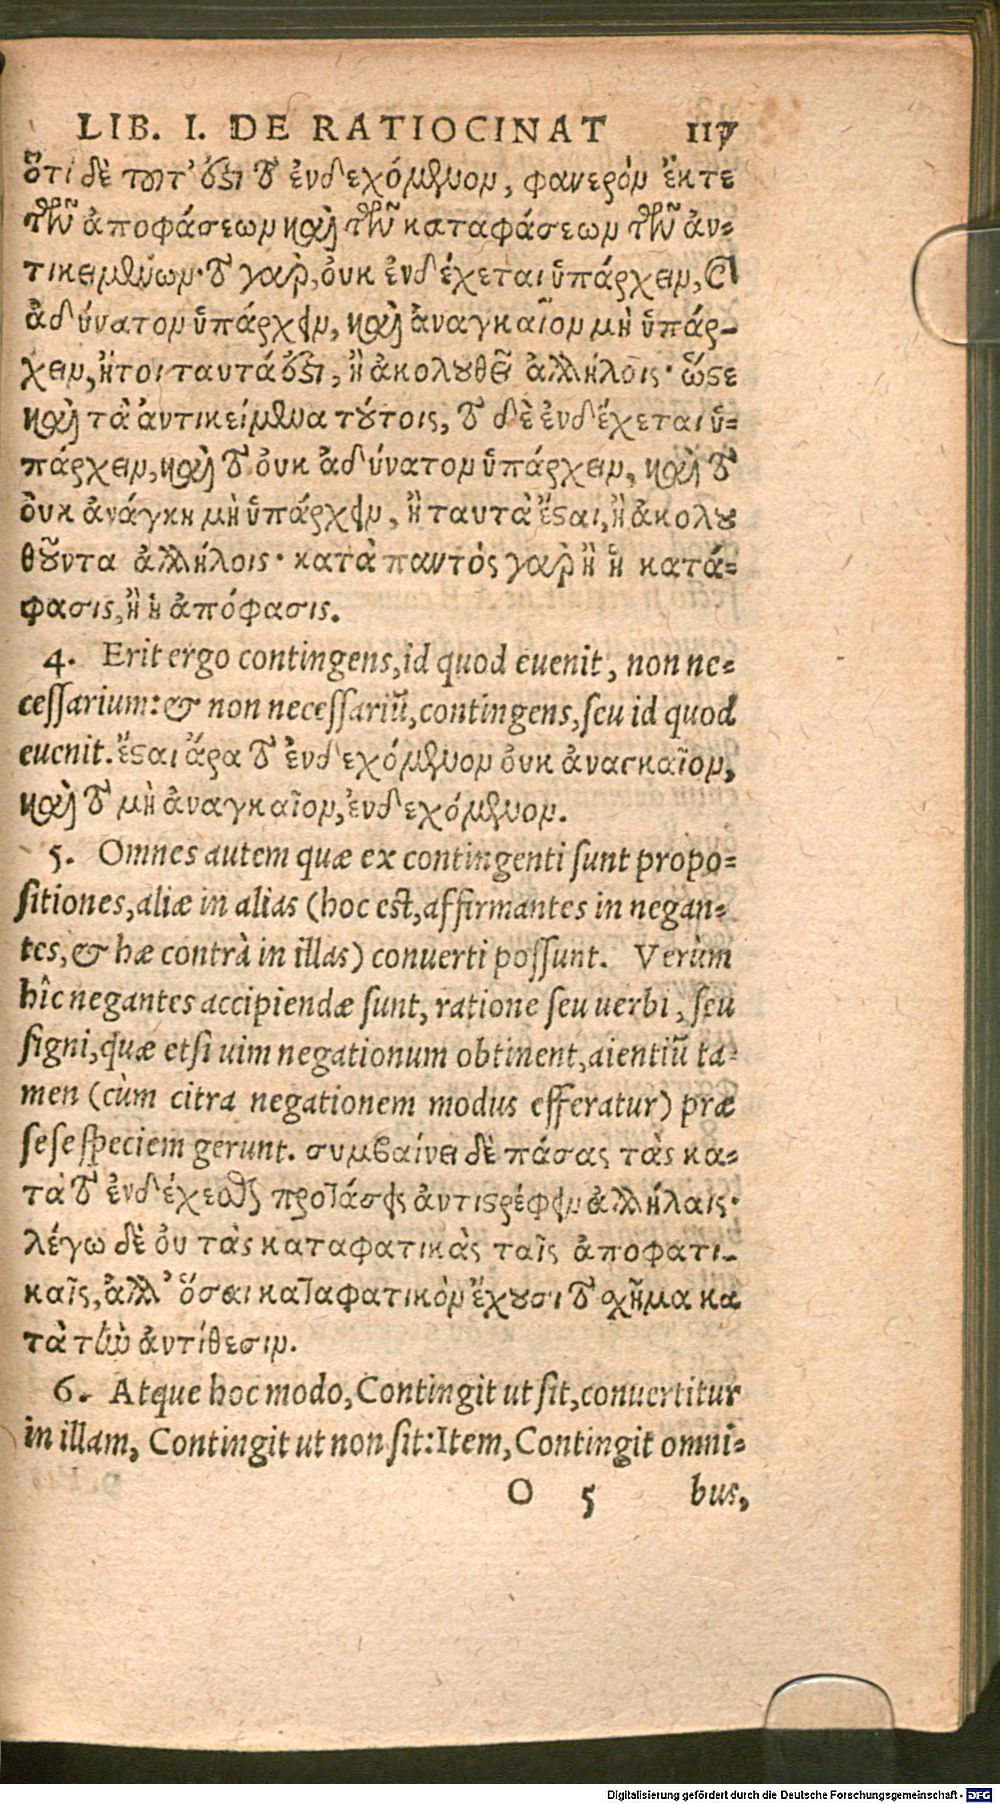 LIB. I. DE RATIOCINAT 117
ὅτι δὲ τοῦτ' ἔστι τὸ ἐνδεχόμενον, φανερὸν ἔκ τε
τῶν ἀποφάσεων καὶ τῶν καταφάσεων τῶν ἀν-
τικειμένων· τὸ γὰρ, οὐκ ἐνδέχεται ὑπάρχειν, καὶ
ἀδύνατον ὑπάρχειν, καὶ ἀναγκαῖον μὴ ὑπάρ-
χειν, ἤτοι ταυτά ἐστι, ἢ ἀκολουθεῖ ἀλλήλοις· ὥστε
καὶ τὰ ἀντικείμενα τούτοις, τὸ δὲ ἐνδέχεται ὑ-
πάρχειν, καὶ τὸ οὐκ ἀδύνατον ὑπάρχειν, καὶ τὸ
οὐκ ἀνάγκη μὴ ὑπάρχειν, ἢ ταυτὰ ἔσται, ἢ ἀκολου
θοῦντα ἀλλήλοις· κατὰ παντὸς γὰρ ἢ ἡ κατά-
φασις, ἢ ἡ ἀπόφασις.
4. Erit ergo contingens, id quod euenit, non ne-
cessarium: & non necessariũ, contingens, seu id quod
euenit. ἔσται ἄρα τὸ ἐνδεχόμενον οὐκ ἀναγκαῖον,
καὶ τὸ μὴ ἀναγκαῖον, ἐνδεχόμενον.
5. Omnes autem quæ ex contingenti sunt propo-
sitiones, aliæ in alias (hoc est, affirmantes in negan-
tes, & hæ contrà in illas) conuerti possunt. Verùm
hîc negantes accipiendæ sunt, ratione seu uerbi, seu
signi, quæ etsi uim negationum obtinent, aientiũ ta-
men (cùm citra negationem modus efferatur) præ
se se speciem gerunt. συμβαίνει δὲ πάσας τὰς κα-
τὰ τὸ ἐνδέχεσθαι προτάσεις ἀντιστρέφειν ἀλλήλαις·
λέγω δὲ οὐ τὰς καταφατικὰς ταῖς ἀποφατι-
καῖς, ἀλλ' ὅσαι καταφατικὸν ἔχουσι τὸ σχῆμα κα
τὰ τὴν ἀντίθεσιν.
6. Atque hoc modo, Contingit ut sit, conuertitur
in illam, Contingit ut non sit: Item, Contingit omni-
O 5 bus,
Digitalisierung gefördert durch die Deutsche Forschungsgemeinschaft - DFG